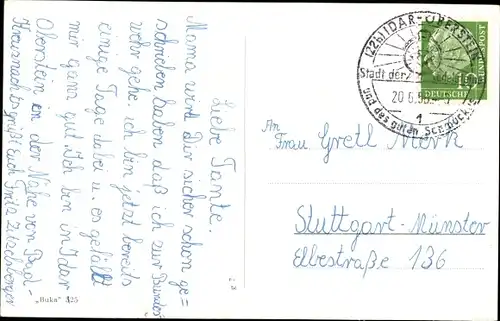 Liebe Tante.
Mama wird Dir sicher schon ge=
schrieben haben daß ich zur Bundes
wehr gehe. ich bin jetzt bereits
einige Tage dabei u. es gefällt
mir ganz gut. Ich bin in Idar
Oberstein in der Nähe von Bad-
Kreuznach. Es grüßt euch Fritz
„Huka“ 425
(22b) IDAR-OBERSTEIN
Stadt der
und des guten Schmuckes
20.6.
1
DEUTSCHE BUNDESPOST
An
Frau Gretl Merk
Stuttgart-Münster
Elbestraße 136